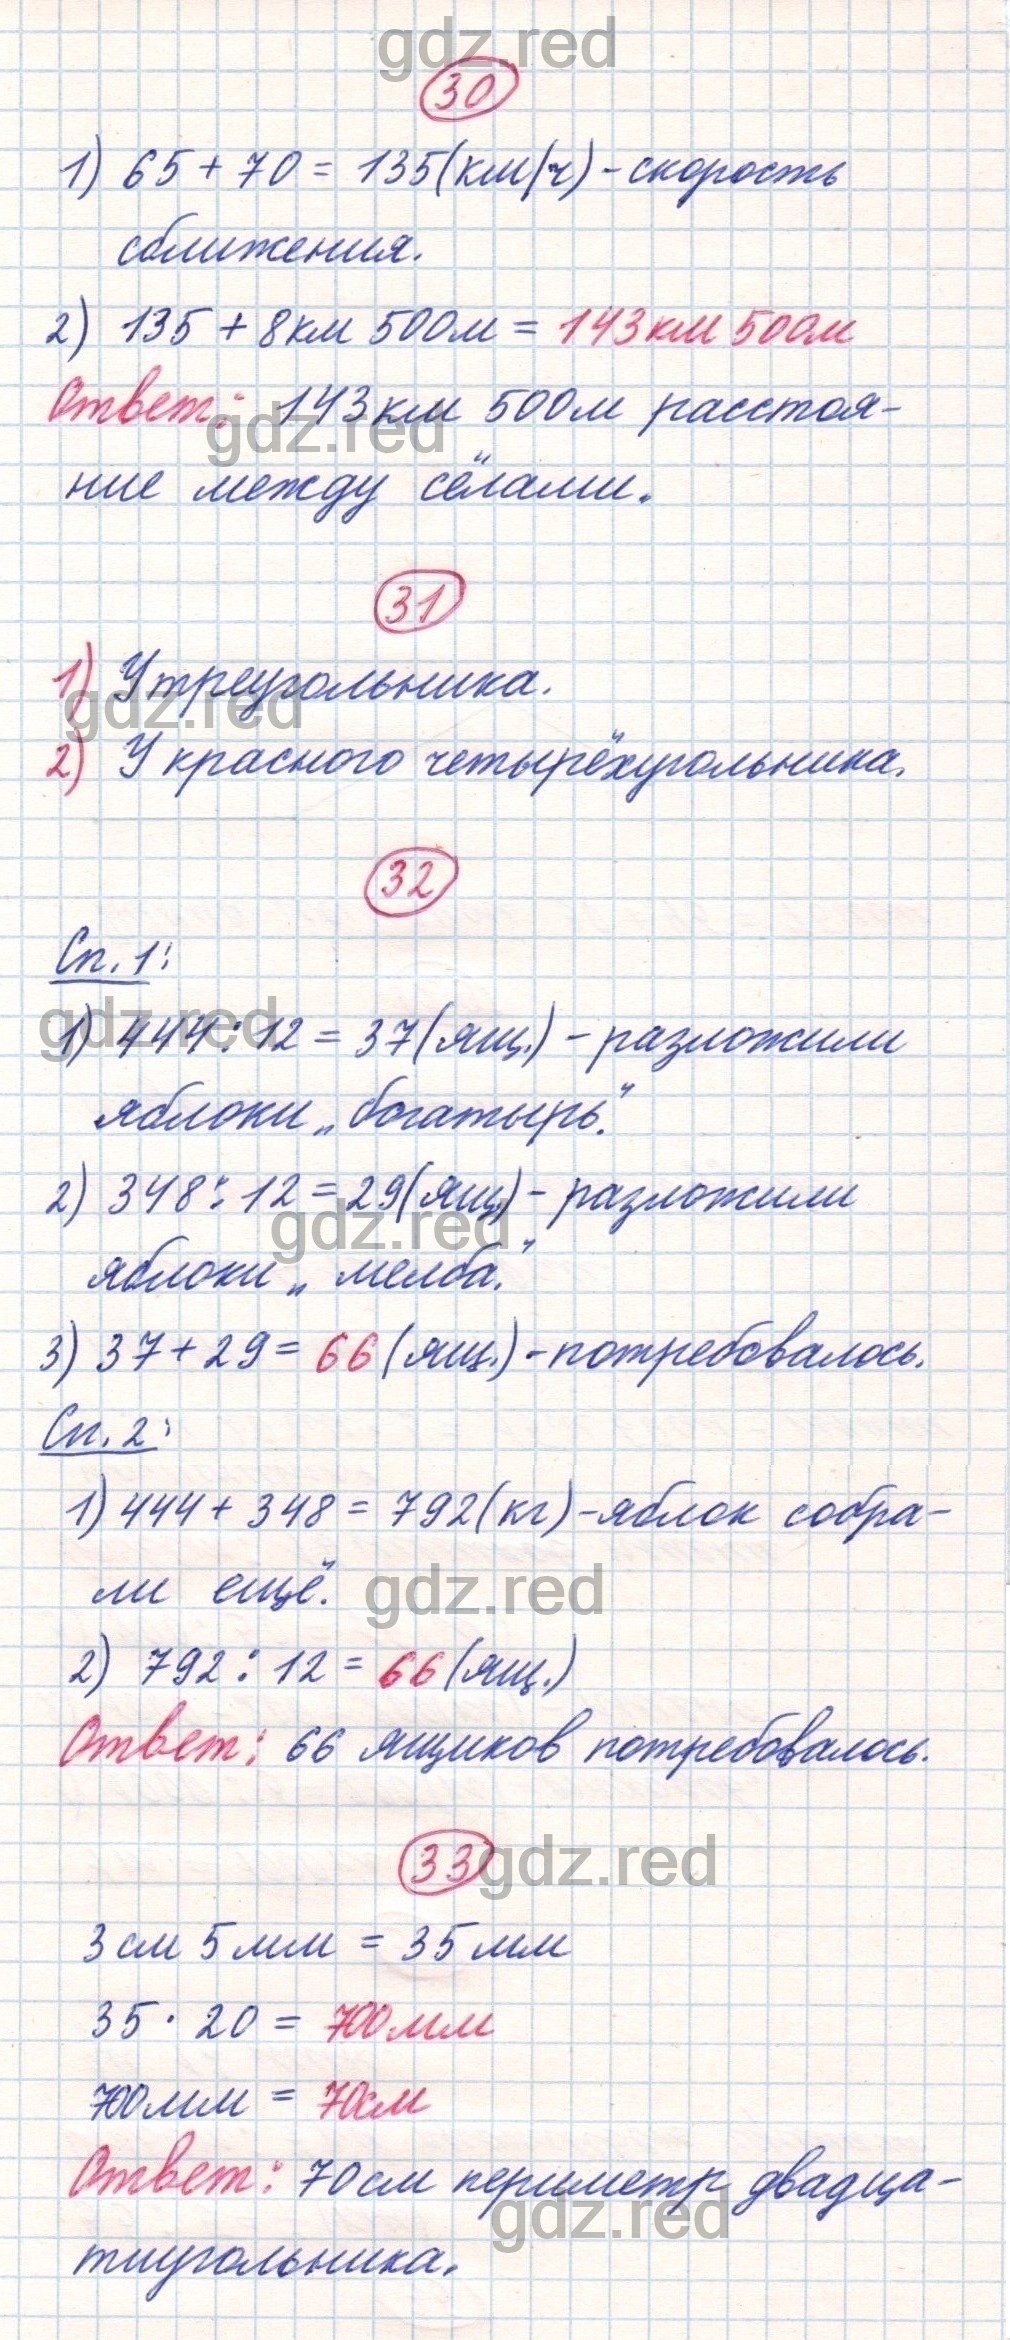 gdz.red
30
1) 65 + 70 = 135 (км/ч) - скорость
сближения.
2) 135 + 8 км 500 м = 143 км 500 м
Ответ: 143 км 500 м расстоя-
gdz.red
ние между сёлами.
31
1) У треугольника.
gdz.red
2) У красного четырёхугольника.
32
Сп. 1:
gdz.red
1) 444 : 12 = 37 (ящ.) - разложили
яблоки „богатырь."
2) 348 : 12 = 29 (ящ.) - разложили
gdz.red
яблоки „мелба."
3) 37 + 29 = 66 (ящ.) - потребовалось.
Сп. 2:
1) 444 + 348 = 792 (кг) - яблок собра-
ли ещё.
gdz.red
2) 792 : 12 = 66 (ящ.)
Ответ: 66 ящиков потребовалось.
33
gdz.red
3 см 5 мм = 35 мм
35 · 20 = 700 мм
700 мм = 70 см
Ответ: 70 см периметр двадца-
gdz.red
тиугольника.